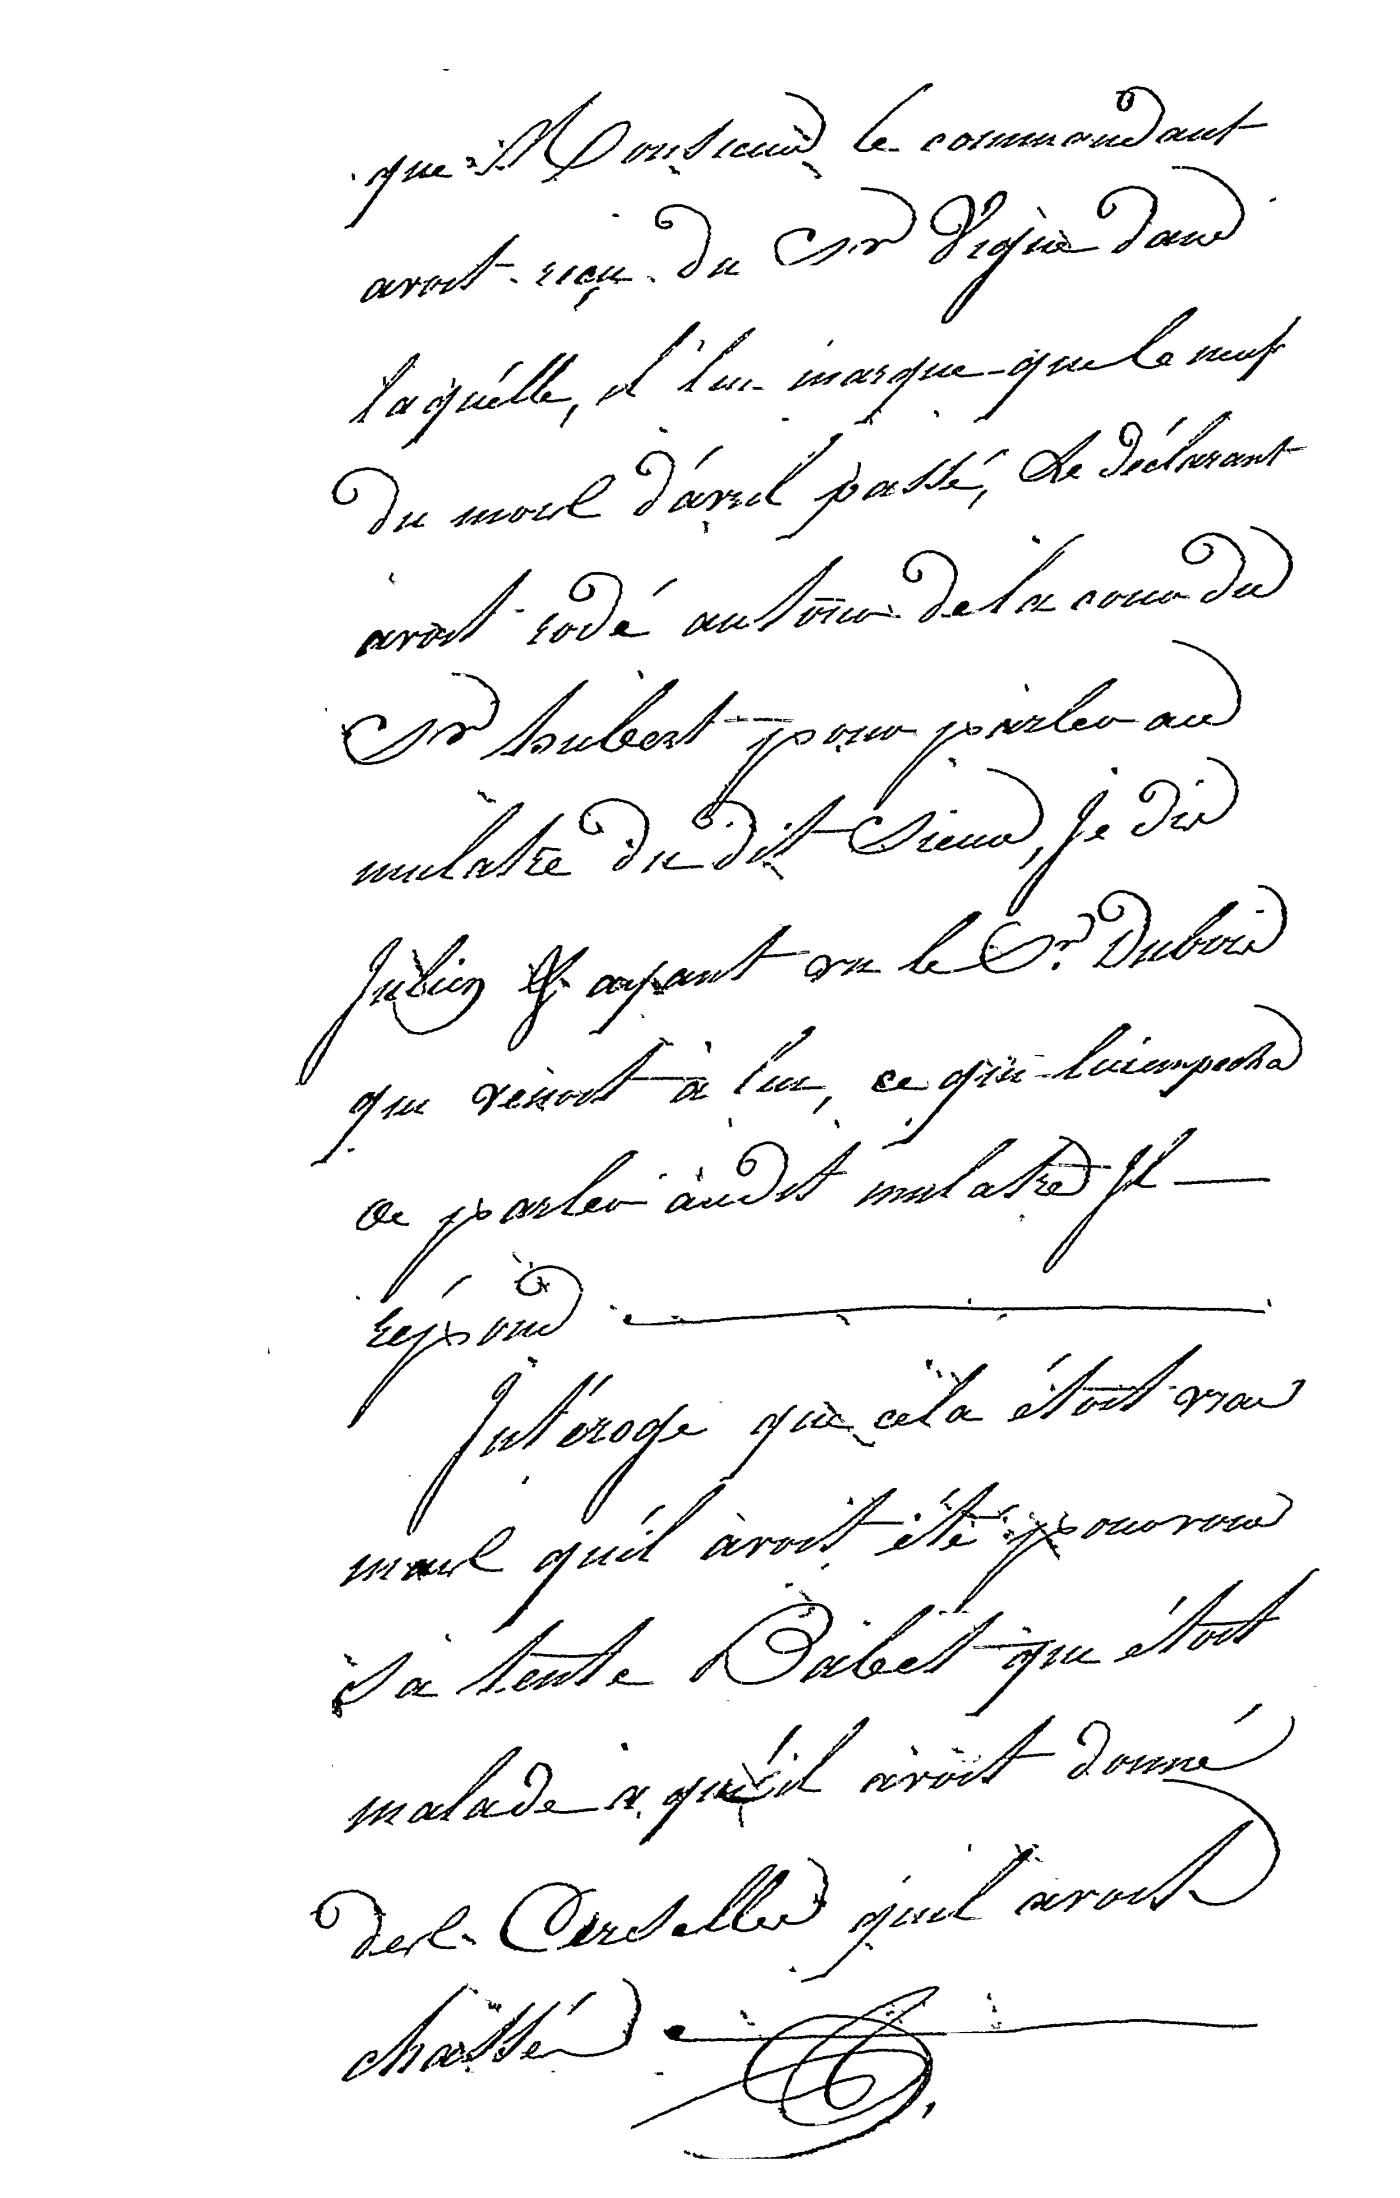 que Monsieur le commandant
avoit reçu du Sr Vigne dans
laquélle, il lui marque que le neuf
du mois d'ávril passé, Le déclarant
avoit rodé autour de la cour du
Sr hubert pour parler au
mulatre du dit Sieur, Je dis
Julien & ayant vu le Sr. Dubois
qui venoit à lui, ce qui lui empecha
de parler audit mulatre Jl
répond
Jntéroge que cela étoit vrai
mais qu'il àvoit été pour voir
sa tente Babet qui étoit
malade a qui il avoit donné
des Cerselles quil avoit
chassés